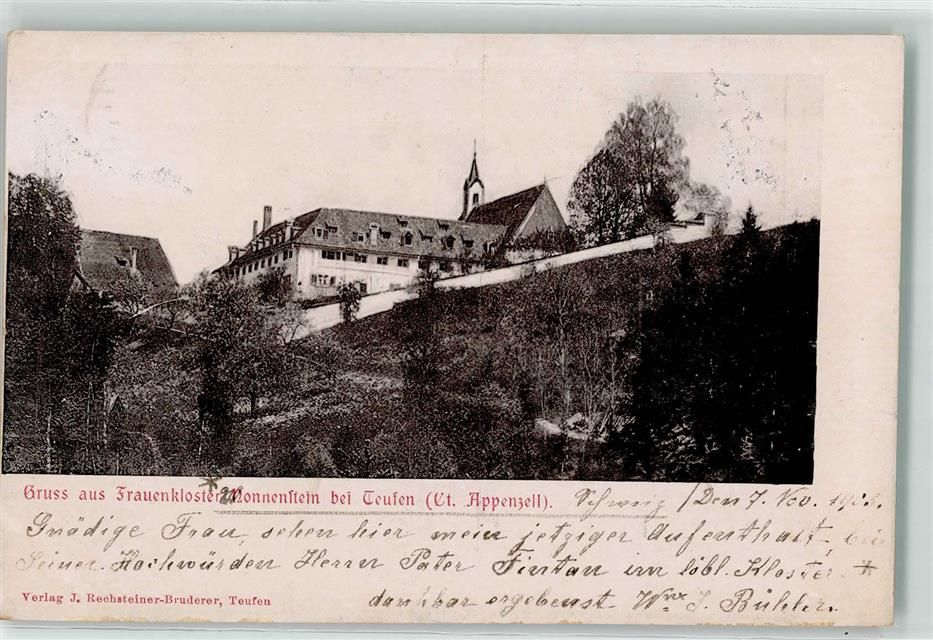 Gruss aus Frauenkloster Wonnenstein bei Teufen (Ct. Appenzell). Schweiz / Den 7. Nov. 1906.
Gnädige Frau, sehen hier mein jetziger Aufenthalt, bei
Seiner Hochwürden Herrn Pater Fintan im löbl. Kloster. *
Verlag J. Rechsteiner-Bruderer, Teufen
dankbar ergebenst J. Bühler.